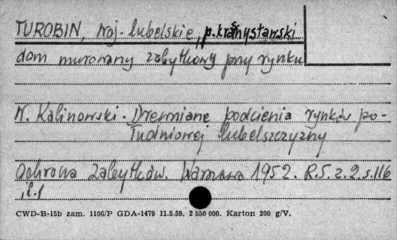 TUROBIN, woj. lubelskie, p. krasnystawski
dom murowany zabytkowy przy rynku
W. Kalinowski. Drewniane podcienia rynków po-
łudniowej lubelszczyzny
Ochrona Zabytków. Warszawa 1952. R.5. z.2. s.116
, il. 1
CWD-B-15b zam. 1106/P GDA-1479 11.5.59. 2 550 000. Karton 200 g/V.